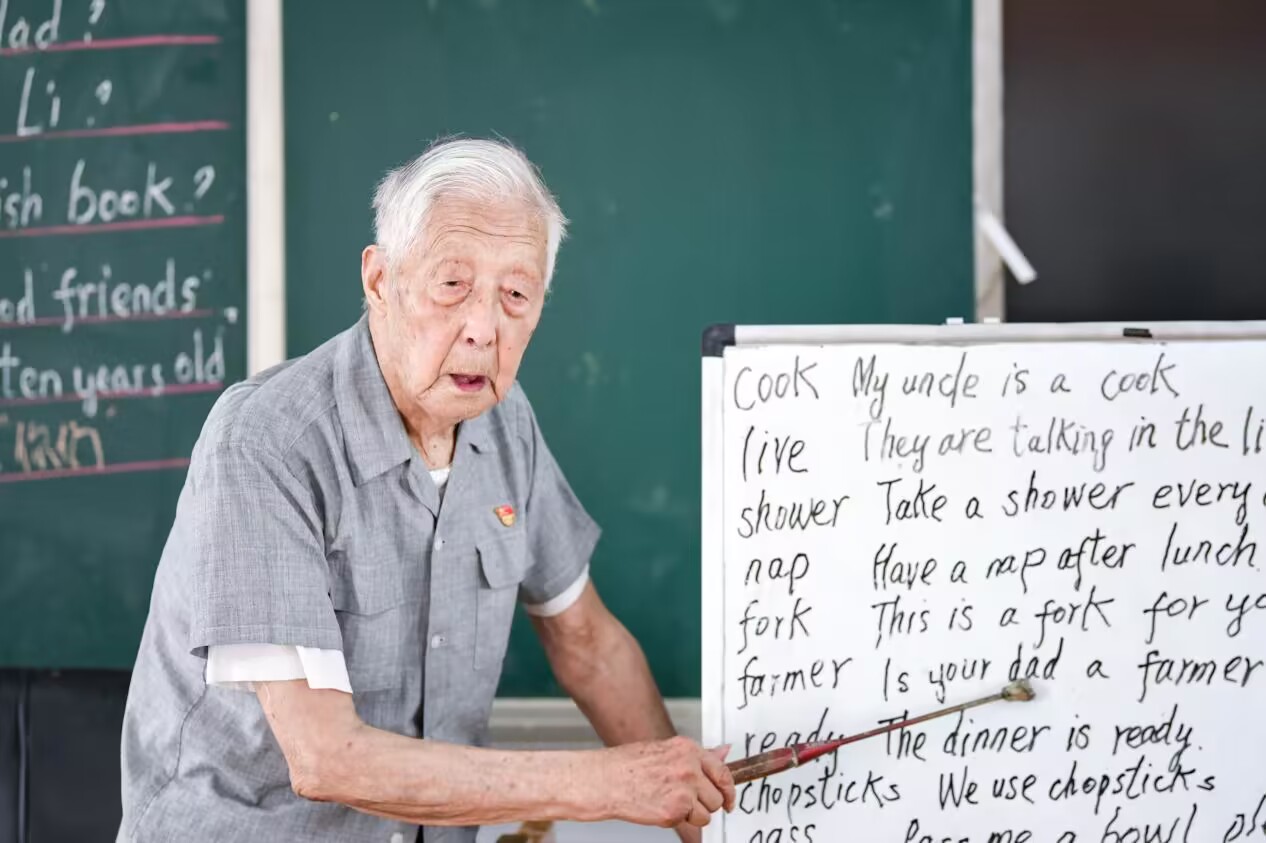 lad ?
Li ?
ish book ?
od friends
ten years old
cook My uncle is a cook
live They are talking in the li
shower Take a shower every
nap Have a nap after lunch.
fork This is a fork for yo
farmer Is your dad a farmer
ready The dinner is ready.
chopsticks We use chopsticks
pass Pass me a bowl